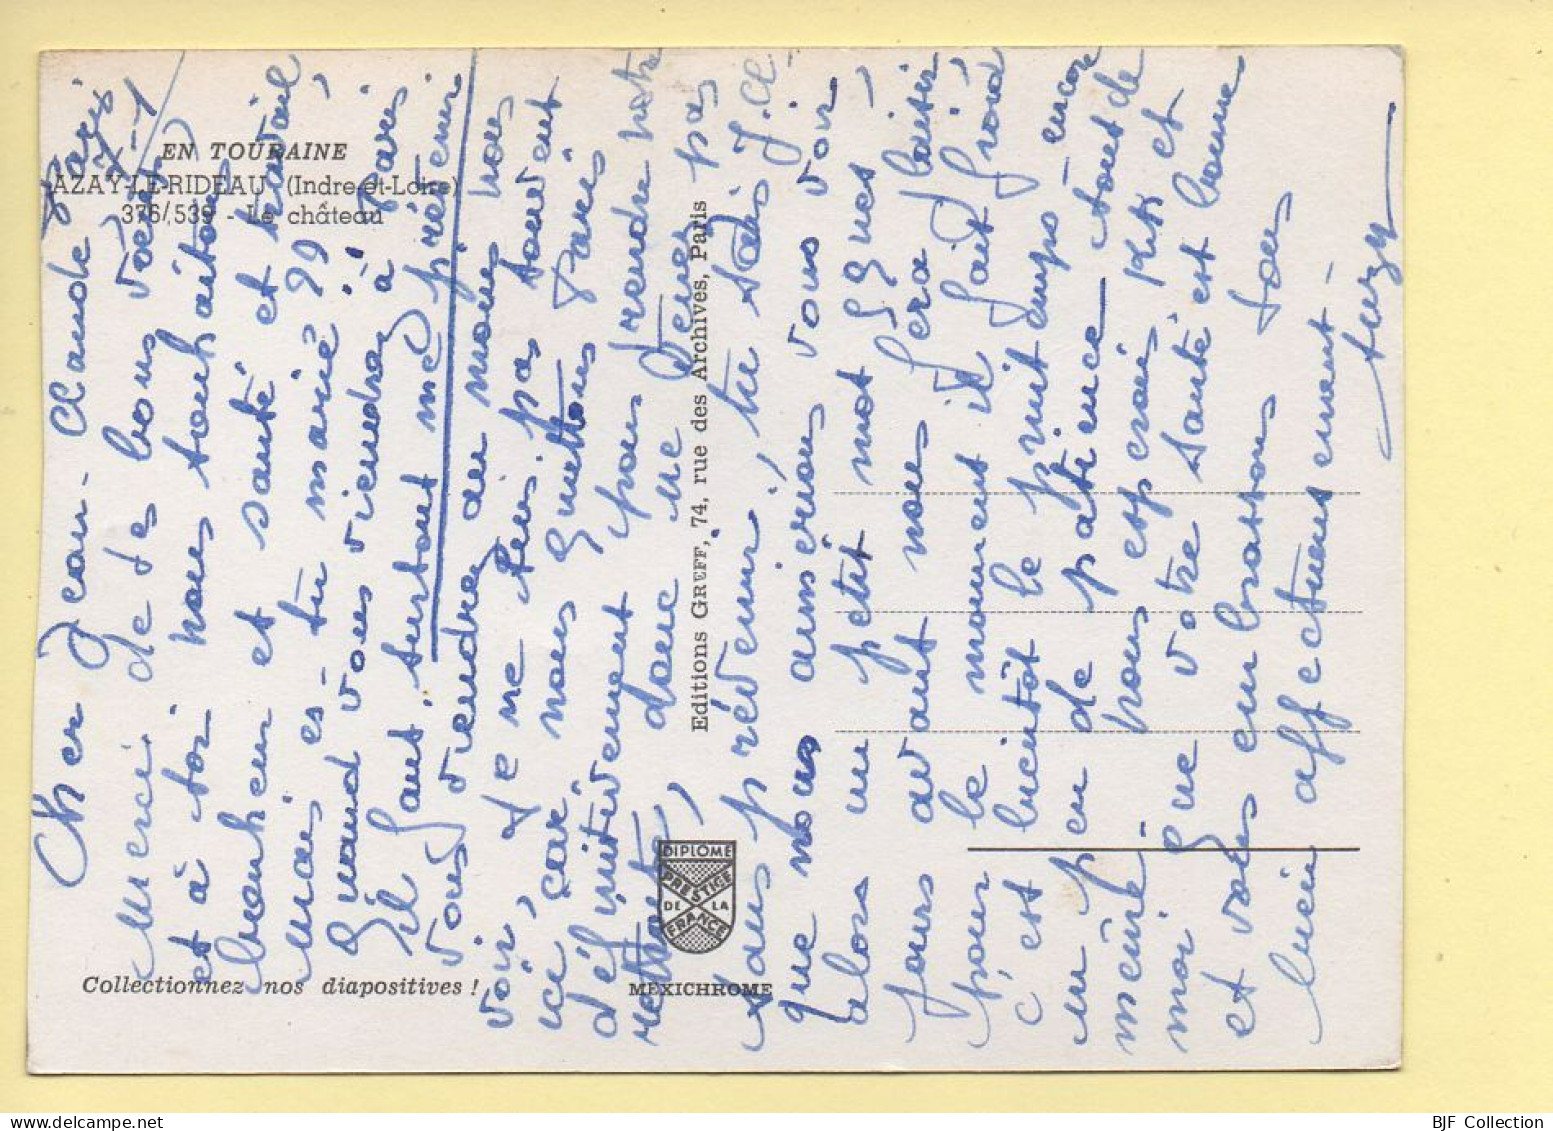 EN TOURAINE
AZAY-LE-RIDEAU (Indre-et-Loire)
376/539 - Le château
Collectionnez nos diapositives !
Editions GREFF, 74, rue des Archives, Paris
DIPLOME
PRESTIGE
DE LA
FRANCE
MEXICHROME
Paris
7-1
Cher Jean-Claude
Merci de tes bons vœux
et à toi nous souhaitons
bonheur et santé et travail
mais es-tu marié ??
Quand vous viendrez à Paris
il faut surtout me prévenir
vous viendrez au moins nous
voir, je ne suis pas souvent
ici car nous quittons Paris
définitivement pour prendre notre
retraite, donc ne venez pas
sans prévenir, tu sais J. Cl.
que nous aimerions vous voir
alors un petit mot quelques
jours avant nous fera plaisir
pour le moment il fait froid
c'est bientôt le printemps encore
un peu de patience tout de
même - nous espérons Kiki et
moi que votre santé est bonne
et vous embrassons tous
bien affectueusement -
Suzy
BJF Collection